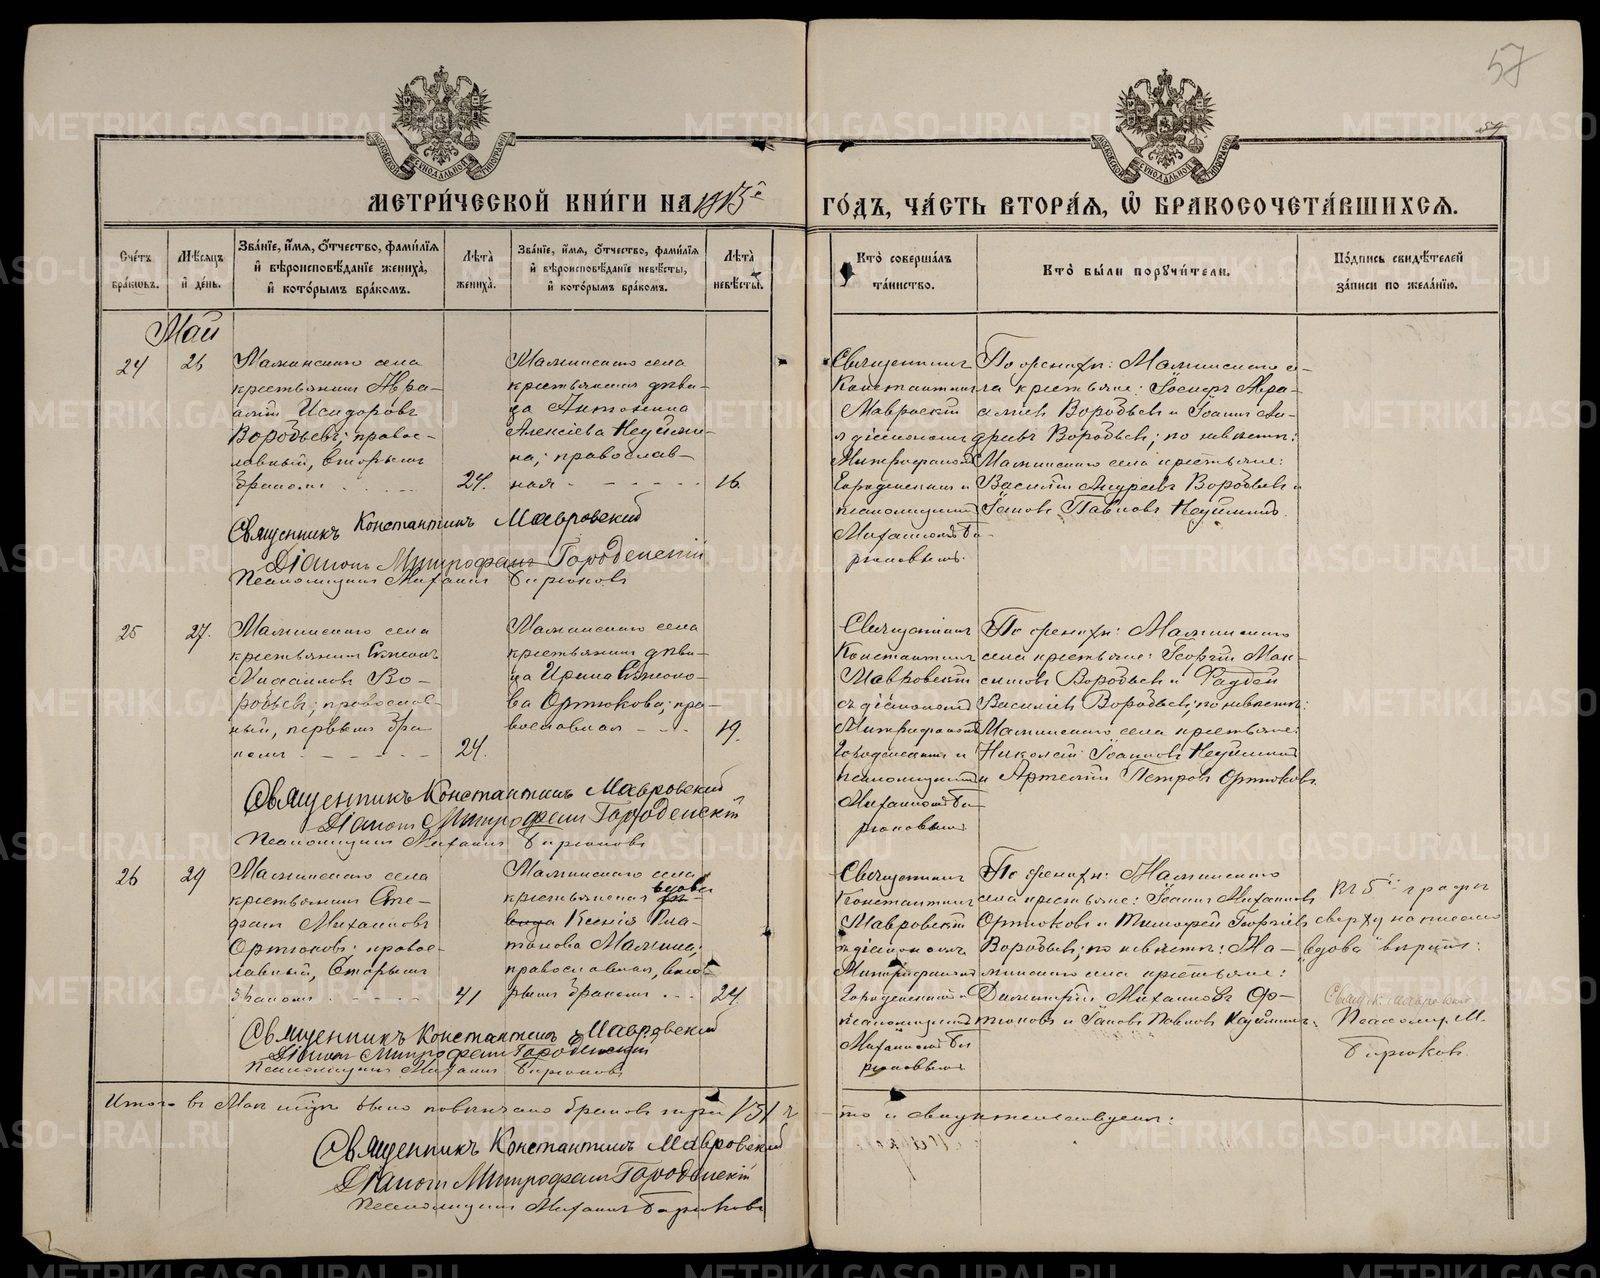 57
59
МОСКОВСКОЙ СѴНОДАЛЬНОЙ ТИПОГРАФІИ
МОСКОВСКОЙ СѴНОДАЛЬНОЙ ТИПОГРАФІИ
МЕТРИ́ЧЕСКОЙ КНИ́ГИ НА 1913й ГО́ДЪ, ЧА́СТЬ ВТОРА́Ѧ, Ѡ БРАКОСОЧЕТА́ВШИХСѦ.
Сче́тъ бра́кωвъ.
Мѣ́сѧцъ и҆ де́нь.
Зва́нїе, и҆́мѧ, ѻ҆́тчество, фами́лїѧ и҆ вѣроисповѣ́данїе жениха̀, и҆ кото́рымъ бра́комъ.
Лѣ́та̀ жениха̀.
Зва́нїе, и҆́мѧ, ѻ҆́тчество, фами́лїѧ и҆ вѣроисповѣ́данїе невѣ́сты, и҆ кото́рымъ бра́комъ.
Лѣ́та̀ невѣ́сты.
Кто̀ соверша́лъ та́инство.
Кто̀ бы́ли порꙋчи́тели.
По́дпись свидѣ́телей за́писи по жела́нїю.
Май
24
26
Маминскаго села
крестьянинъ Авра-
амій Исидоровъ
Воробьевъ; правос-
лавный, вторымъ
бракомъ
24.
Маминскаго села
крестьянская дѣви-
ца Антонина
Алексіева Неуйми-
на; православ-
ная
16.
Священникъ
Константинъ
Мавровскій
съ діакономъ
Митрофаномъ
Городенскимъ и
псаломщикомъ
Михаиломъ Би-
рюковымъ.
По женихѣ: Маминскаго се-
ла крестьяне: Іосифъ Авра-
аміевъ Воробьевъ и Іоаннъ Ан-
дреевъ Воробьевъ; по невѣстѣ:
Маминскаго села крестьяне:
Василій Андреевъ Воробьевъ и
Іаковъ Павловъ Неуйминъ.
Священникъ Константинъ Мавровскій
Діаконъ Митрофанъ Городенскій
Псаломщикъ Михаилъ Бирюковъ
25
27.
Маминскаго села
крестьянинъ Симеонъ
Михаиловъ Во-
робьевъ; православ-
ный, первымъ бра-
комъ
24.
Маминскаго села
крестьянская дѣви-
ца Ирина Симеоно-
ва Ортюкова; пра-
вославная
19.
Священникъ
Константинъ
Мавровскій
съ діакономъ
Митрофаномъ
Городенскимъ и
псаломщикомъ
Михаиломъ Би-
рюковымъ
По женихѣ: Маминскаго
села крестьяне: Георгій Мак-
симовъ Воробьевъ и Фаддей
Василіевъ Воробьевъ; по невѣстѣ:
Маминскаго села крестьяне:
Николай Іоанновъ Неуйминъ
и Артемій Петровъ Ортюковъ.
Священникъ Константинъ Мавровскій
Діаконъ Митрофанъ Городенскій
Псаломщикъ Михаилъ Бирюковъ
26
29
Маминскаго села
крестьянинъ Сте-
фанъ Михаиловъ
Ортюковъ; правос-
лавный, вторымъ
бракомъ
41
Маминскаго села
крестьянская вдова
Ксенія Пла-
тонова Мамина;
православная, вто-
рымъ бракомъ
24.
Священникъ
Константинъ
Мавровскій
съ діакономъ
Митрофаномъ
Городенскимъ и
псаломщикомъ
Михаиломъ Би-
рюковымъ
По женихѣ: Маминскаго
села крестьяне: Іоаннъ Михаиловъ
Ортюковъ и Тимофей Георгіевъ
Воробьевъ; по невѣстѣ: Ма-
минскаго села крестьяне:
Димитрій Михаиловъ Ор-
тюковъ и Іаковъ Павловъ Неуйминъ.
Въ 5й графѣ
сверху написано
"вдова" вѣрно:
Свящ. К. Мавровскій
Псаломщ. М.
Бирюковъ.
Священникъ Константинъ Мавровскій
Діаконъ Митрофанъ Городенскій
Псаломщикъ Михаилъ Бирюковъ
Итого въ Маѣ мѣсяцѣ было повѣнчано браковъ три /3/ ч
то и свидѣтельствуемъ:
Священникъ Константинъ Мавровскій
Діаконъ Митрофанъ Городенскій
Псаломщикъ Михаилъ Бирюковъ
METRIKI.GASO-URAL.RU